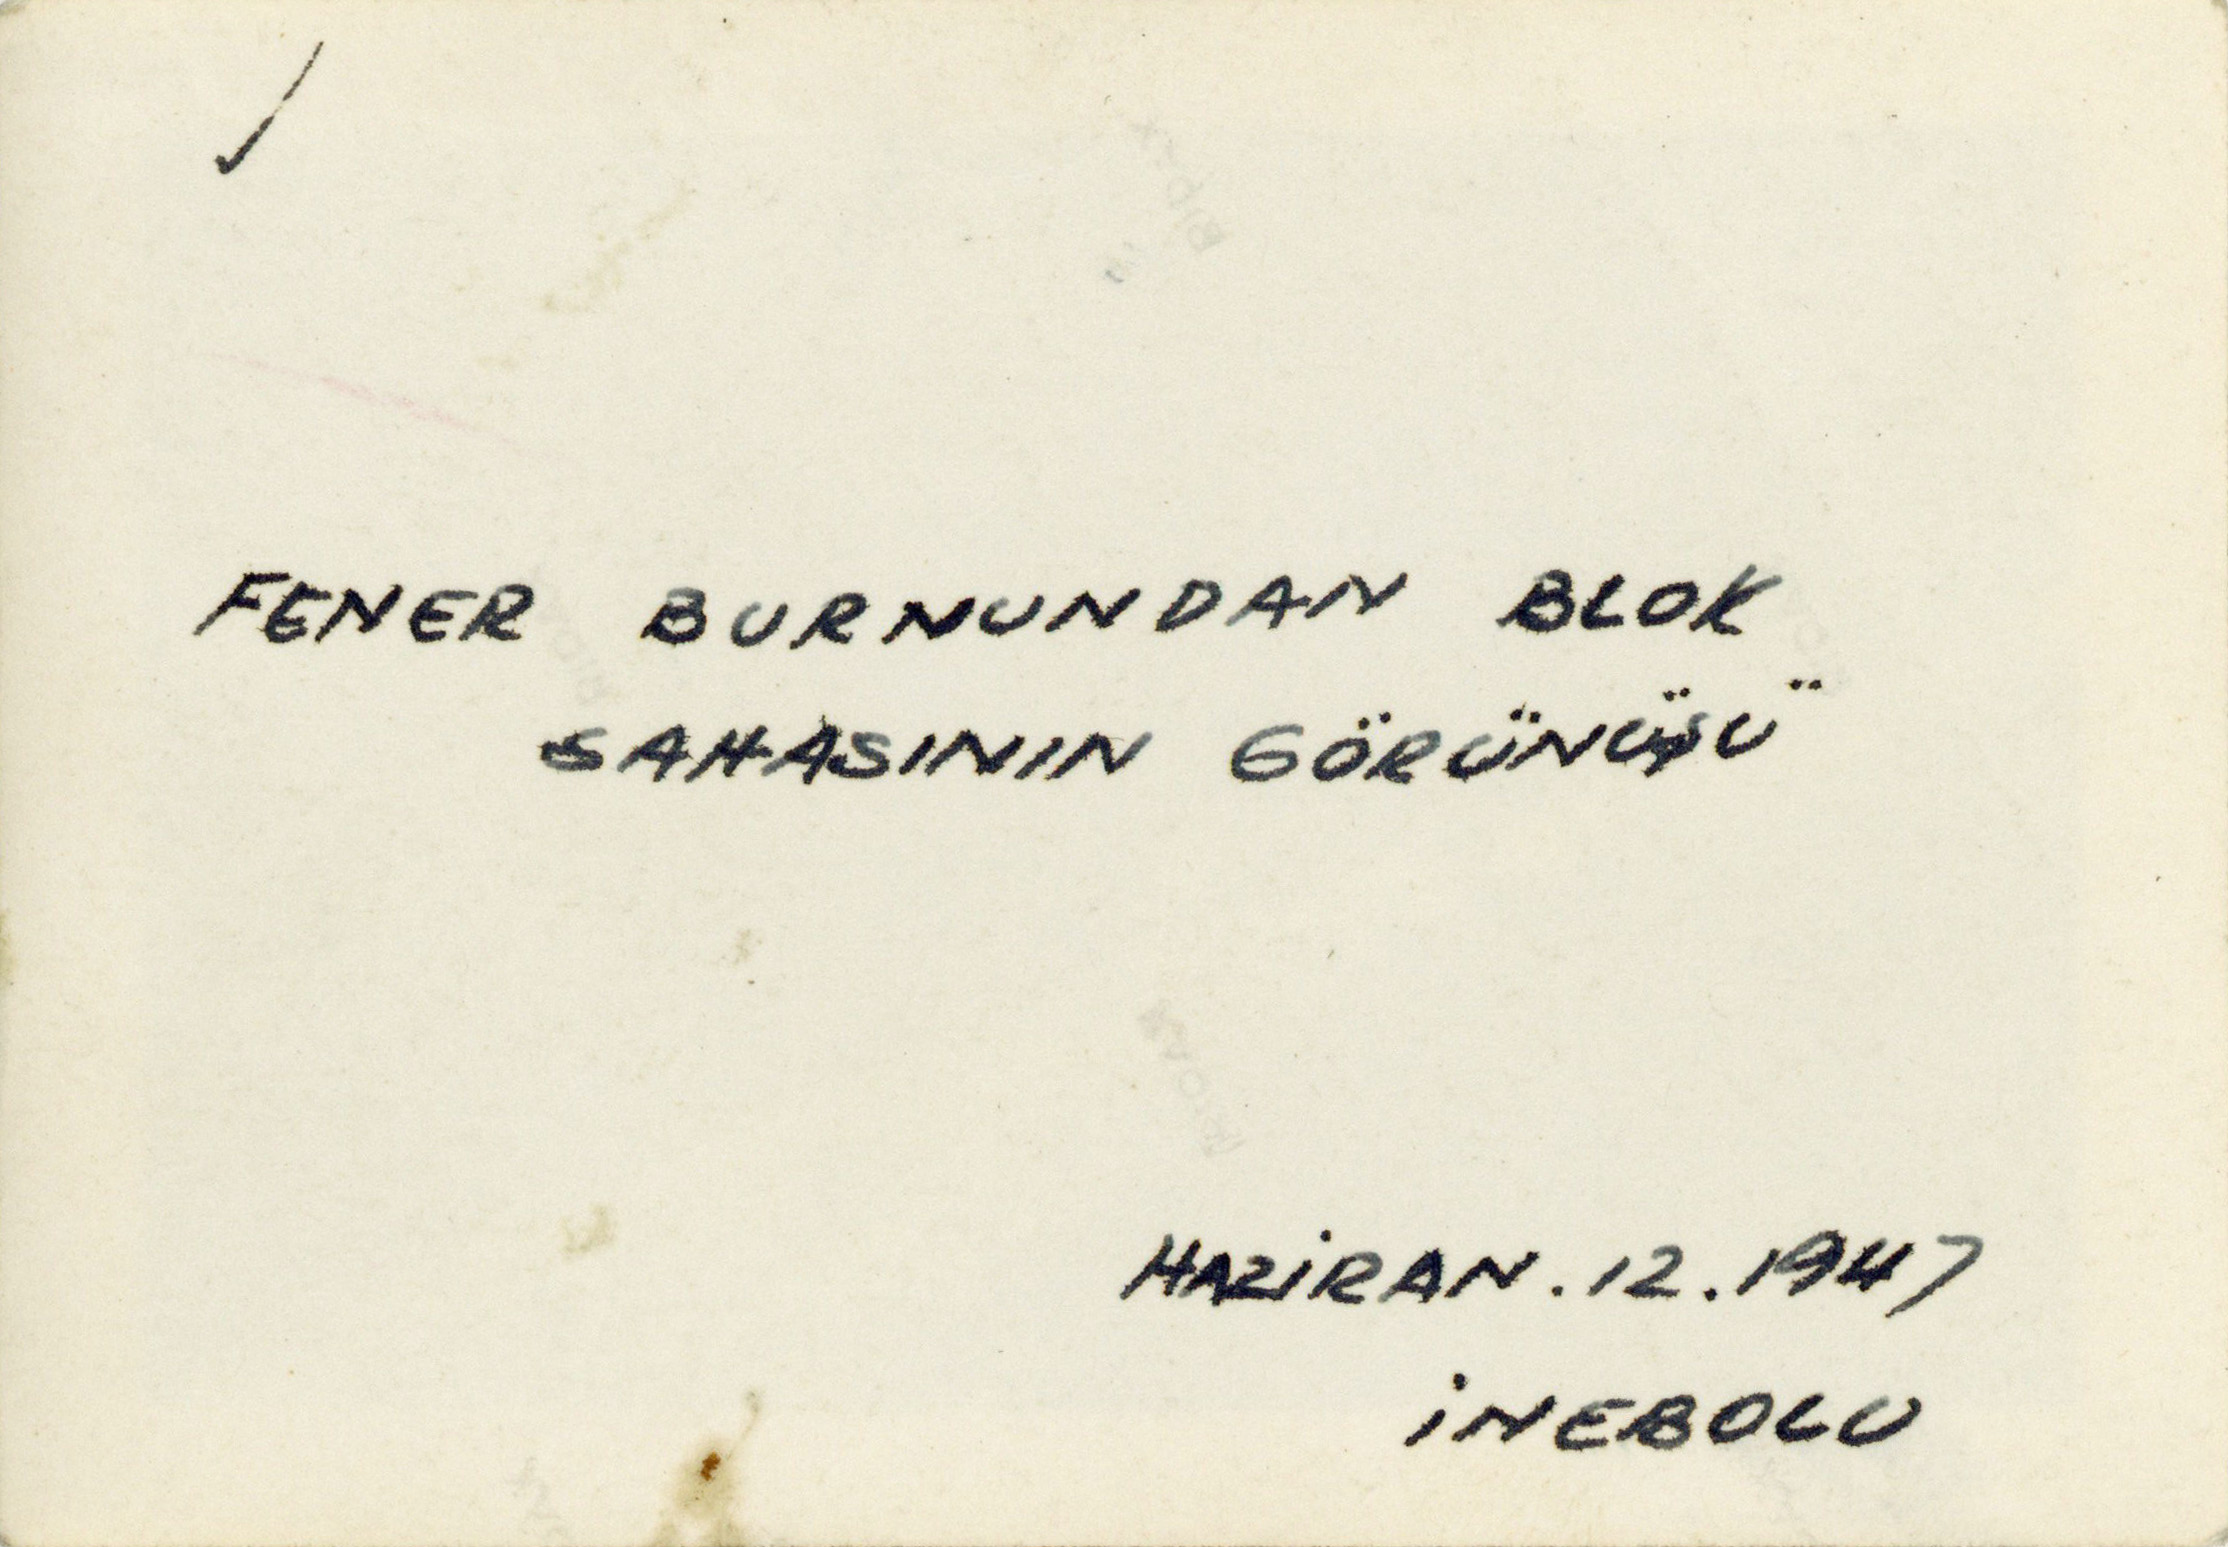 FENER BURNUNDAN BLOK
SAHASININ GÖRÜNÜŞÜ
HAZİRAN.12.1947
İNEBOLU